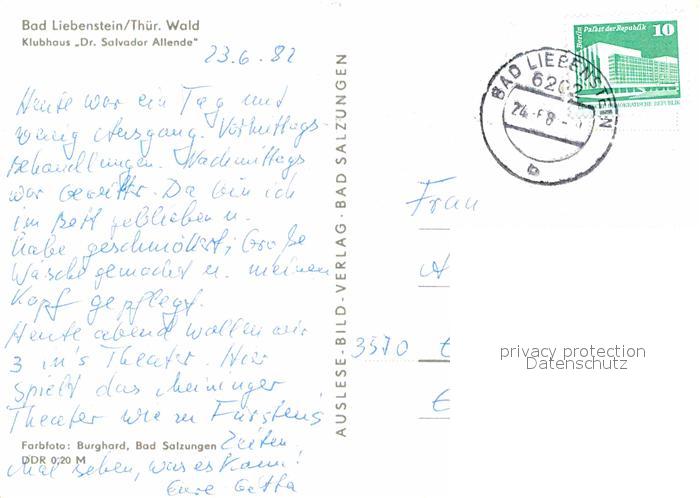 Bad Liebenstein/Thür. Wald
Klubhaus „Dr. Salvador Allende"
23.6.82
Heute war ein Tag mit
wenig Ausgang. Vormittags-
behandlungen. Nachmittags
war Gewitter. Da bin ich
im Bett geblieben u.
habe geschmökert, Große
Wäsche gemacht u. meinen
Kopf gepflegt.
Heute abend wollen wir
3 in's Theater. Hier
spielt das Meininger
Theater wie zu Fürstens
Zeiten.
Mal sehen, was es kann!
Eure
Farbfoto: Burghard, Bad Salzungen
DDR 0,20 M
AUSLESE-BILD-VERLAG · BAD SALZUNGEN
Berlin Palast der Republik 10
DEMOKRATISCHE REPUBLIK
BAD LIEBENSTEIN
6202
b
Frau
A
3570
privacy protection
Datenschutz